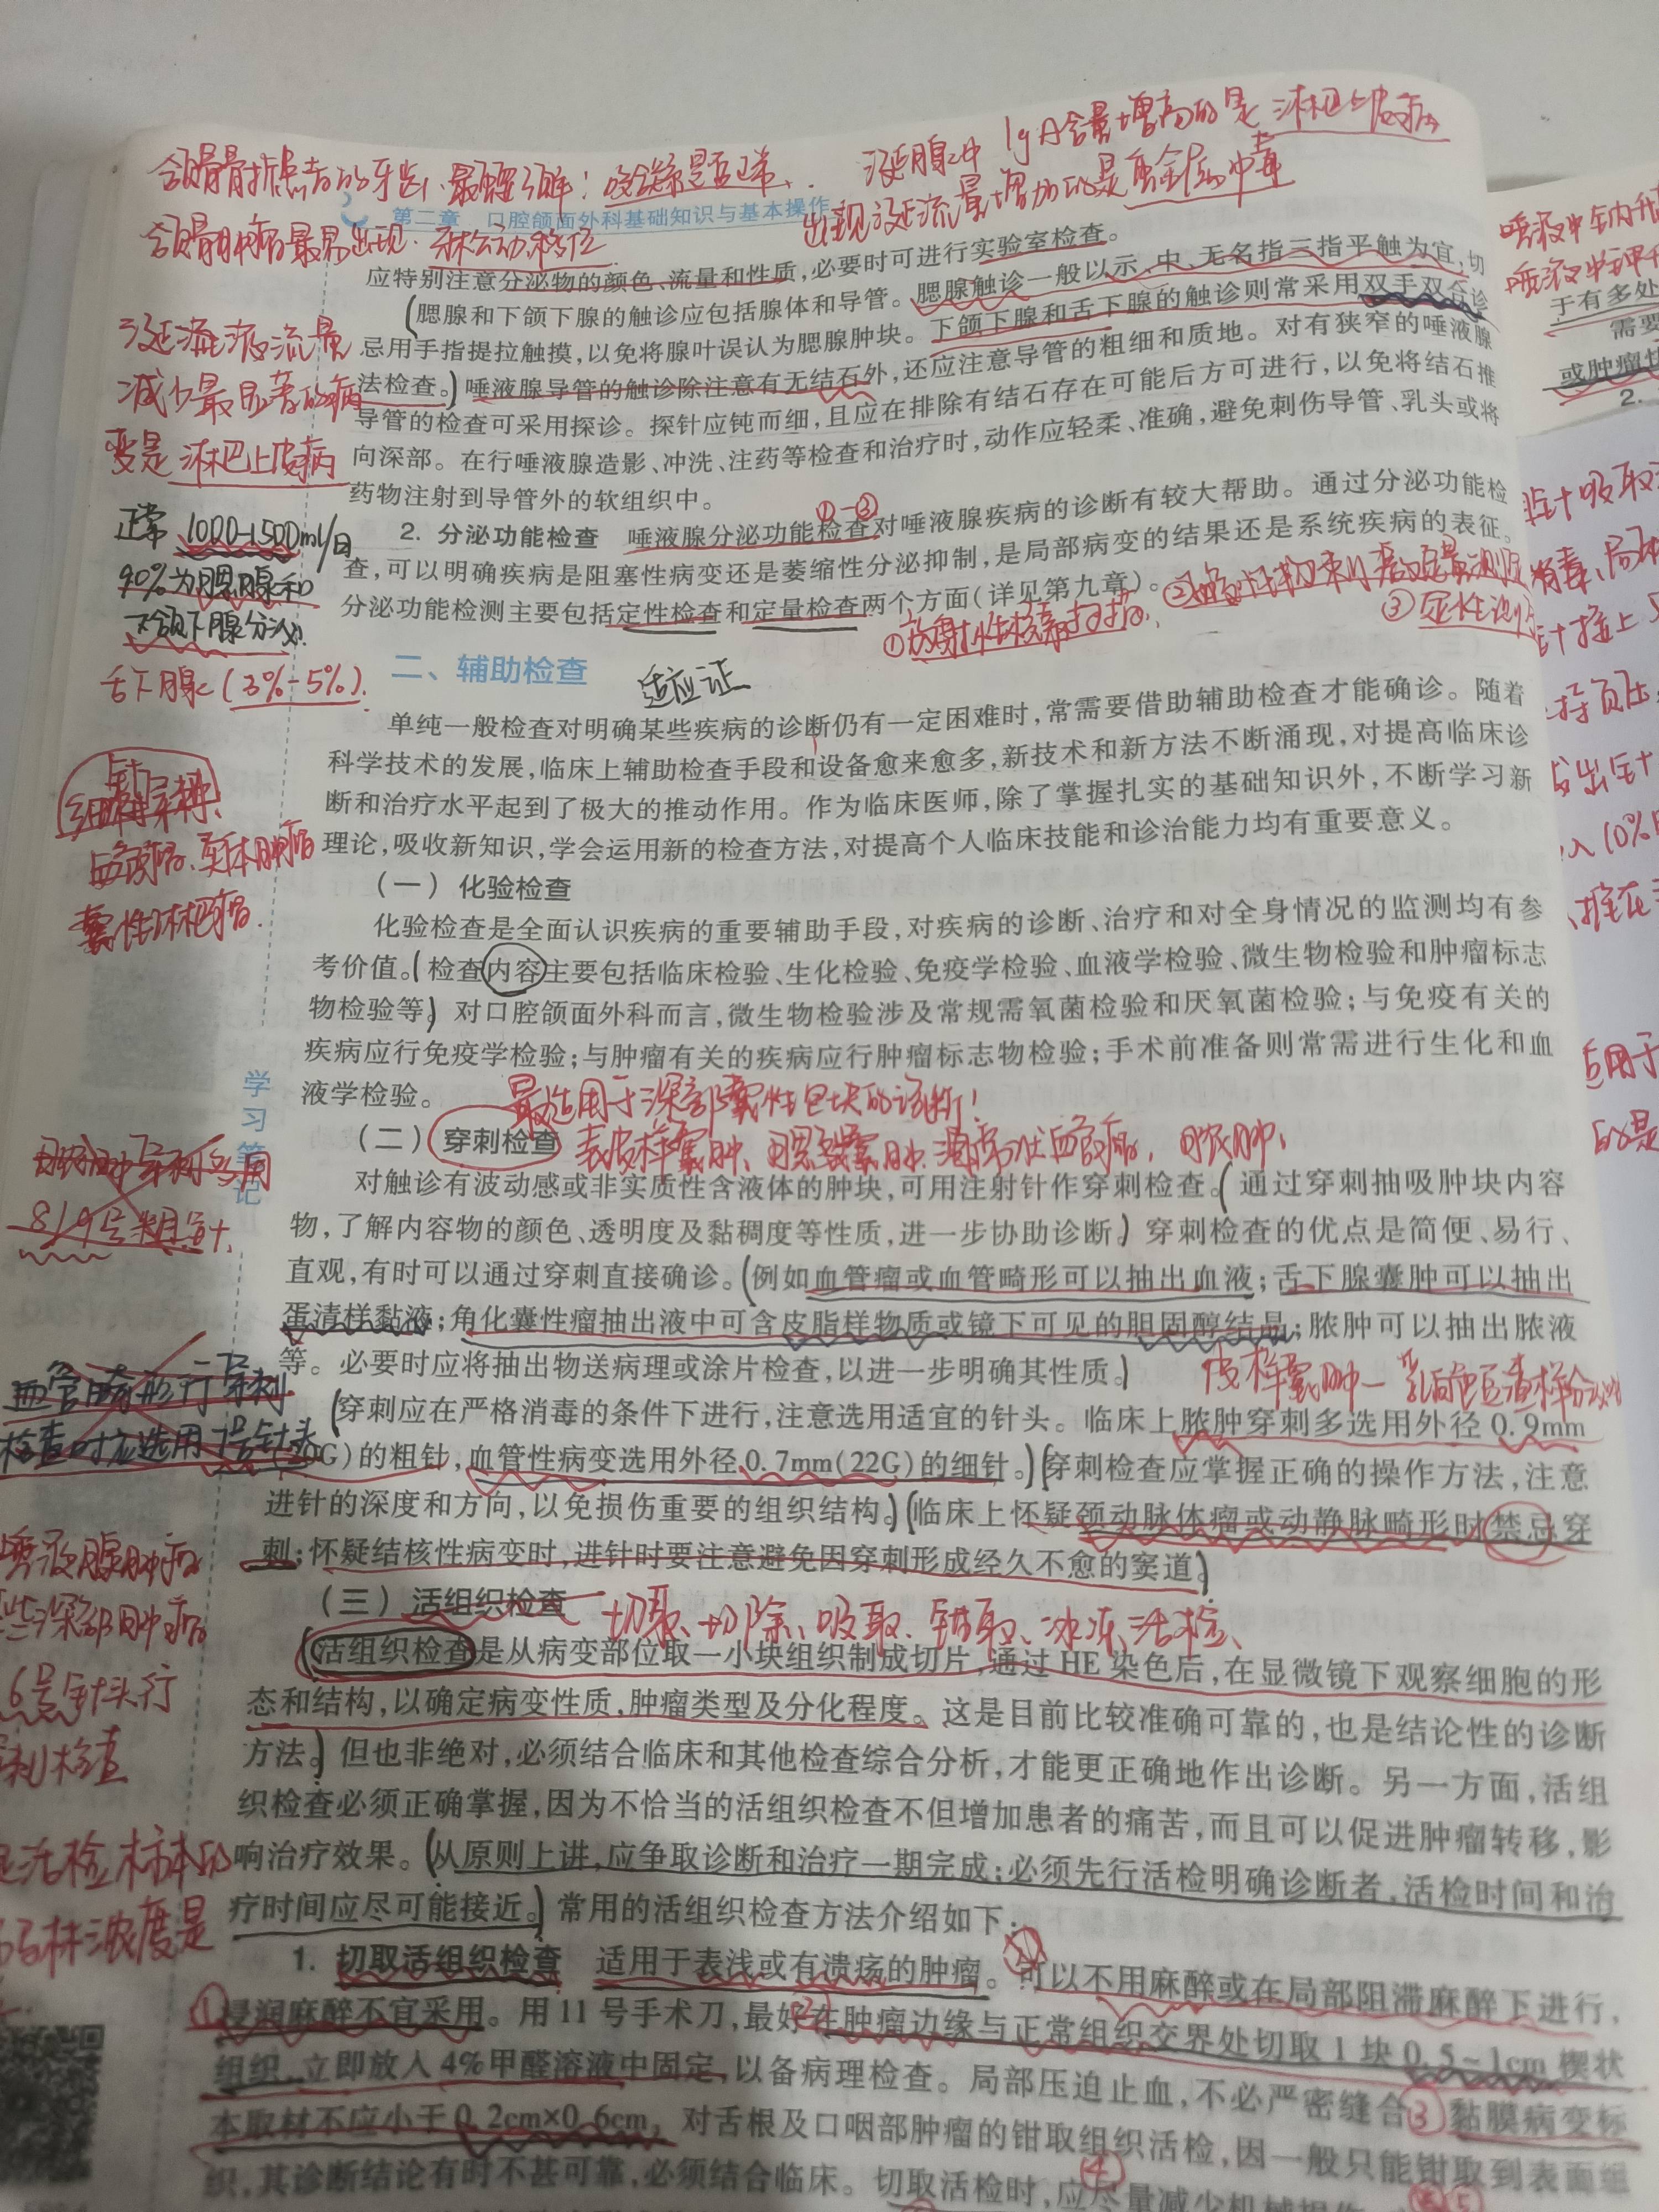 颌骨骨折患者的牙齿、最重要了解：咬合关系是否正常、
涎腺中 IgA含量增高的是 淋巴上皮病
出现涎流量增加的是重金属中毒
第二章 口腔颌面外科基础知识与基本操作
颌骨肿瘤最易出现
应特别注意分泌物的颜色、流量和性质，必要时可进行实验室检查。
腮腺和下颌下腺的触诊应包括腺体和导管。腮腺触诊一般以示、中、无名指三指平触为宜，切
忌用手指提拉触摸，以免将腺叶误认为腮腺肿块。下颌下腺和舌下腺的触诊则常采用双手双合诊
法检查。唾液腺导管的触诊除注意有无结石外，还应注意导管的粗细和质地。对有狭窄的唾液腺
导管的检查可采用探诊。探针应钝而细，且应在排除有结石存在可能后方可进行，以免将结石推
向深部。在行唾液腺造影、冲洗、注药等检查和治疗时，动作应轻柔、准确，避免刺伤导管、乳头或将
药物注射到导管外的软组织中。
流量
减少最显著的病
变是 淋巴上皮病
正常 1000-1500ml/日
90%为腮腺和
下颌下腺分泌.
舌下腺(3%-5%).
①-③
2. 分泌功能检查 唾液腺分泌功能检查对唾液腺疾病的诊断有较大帮助。通过分泌功能检
查，可以明确疾病是阻塞性病变还是萎缩性分泌抑制，是局部病变的结果还是系统疾病的表征。
分泌功能检测主要包括定性检查和定量检查两个方面（详见第九章）。
①放射性核素扫描、
③定性测
二、辅助检查
适应证
单纯一般检查对明确某些疾病的诊断仍有一定困难时，常需要借助辅助检查才能确诊。随着
科学技术的发展，临床上辅助检查手段和设备愈来愈多，新技术和新方法不断涌现，对提高临床诊
断和治疗水平起到了极大的推动作用。作为临床医师，除了掌握扎实的基础知识外，不断学习新
理论，吸收新知识，学会运用新的检查方法，对提高个人临床技能和诊治能力均有重要意义。
血管瘤、实体肿瘤
囊性淋巴管瘤.
（一）化验检查
化验检查是全面认识疾病的重要辅助手段，对疾病的诊断、治疗和对全身情况的监测均有参
考价值。检查内容主要包括临床检验、生化检验、免疫学检验、血液学检验、微生物检验和肿瘤标志
物检验等。对口腔颌面外科而言，微生物检验涉及常规需氧菌检验和厌氧菌检验；与免疫有关的
疾病应行免疫学检验；与肿瘤有关的疾病应行肿瘤标志物检验；手术前准备则常需进行生化和血
液学检验。
学习笔记
最适用于深部囊性包块的诊断！
（二）穿刺检查
表皮样囊肿、腮裂囊肿、海绵状血管瘤，脓肿、
对触诊有波动感或非实质性含液体的肿块，可用注射针作穿刺检查。通过穿刺抽吸肿块内容
物，了解内容物的颜色、透明度及黏稠度等性质，进一步协助诊断。穿刺检查的优点是简便、易行、
直观，有时可以通过穿刺直接确诊。例如血管瘤或血管畸形可以抽出血液；舌下腺囊肿可以抽出
蛋清样黏液；角化囊性瘤抽出液中可含皮脂样物质或镜下可见的胆固醇结晶；脓肿可以抽出脓液
等。必要时应将抽出物送病理或涂片检查，以进一步明确其性质。
脓肿穿刺多用
8/9号粗针
皮样囊肿—乳白色豆渣样分泌物
穿刺应在严格消毒的条件下进行，注意选用适宜的针头。临床上脓肿穿刺多选用外径 0.9mm
G)的粗针，血管性病变选用外径 0.7mm(22G)的细针。穿刺检查应掌握正确的操作方法，注意
进针的深度和方向，以免损伤重要的组织结构。临床上怀疑颈动脉体瘤或动静脉畸形时禁忌穿
刺；怀疑结核性病变时，进针时要注意避免因穿刺形成经久不愈的窦道。
血管畸形行穿刺
检查时应选用7号针头
唾液腺肿瘤
些深部肿瘤
6号针头行
刺检查
（三）活组织检查
切取、切除、吸取、钳取、冰冻活检、
活组织检查是从病变部位取一小块组织制成切片，通过 HE 染色后，在显微镜下观察细胞的形
态和结构，以确定病变性质，肿瘤类型及分化程度。这是目前比较准确可靠的，也是结论性的诊断
方法。但也非绝对，必须结合临床和其他检查综合分析，才能更正确地作出诊断。另一方面，活组
织检查必须正确掌握，因为不恰当的活组织检查不但增加患者的痛苦，而且可以促进肿瘤转移，影
响治疗效果。从原则上讲，应争取诊断和治疗一期完成；必须先行活检明确诊断者，活检时间和治
疗时间应尽可能接近。常用的活组织检查方法介绍如下：
活检标本的
马林浓度是
1. 切取活组织检查 适用于表浅或有溃疡的肿瘤。可以不用麻醉或在局部阻滞麻醉下进行，
①浸润麻醉不宜采用。用 11 号手术刀，最好②在肿瘤边缘与正常组织交界处切取 1 块 0.5～1cm 楔状
组织，立即放入 4%甲醛溶液中固定，以备病理检查。局部压迫止血，不必严密缝合③黏膜病变标
本取材不应小于 0.2cm×0.6cm，对舌根及口咽部肿瘤的钳取组织活检，因一般只能钳取到表面组
织，其诊断结论有时不甚可靠，必须结合临床。切取活检时，④应尽量减少机械损伤
于有多处
需要
或肿瘤性
2.
针吸取
持负压
出针
入10%
、推在
适用于
的是